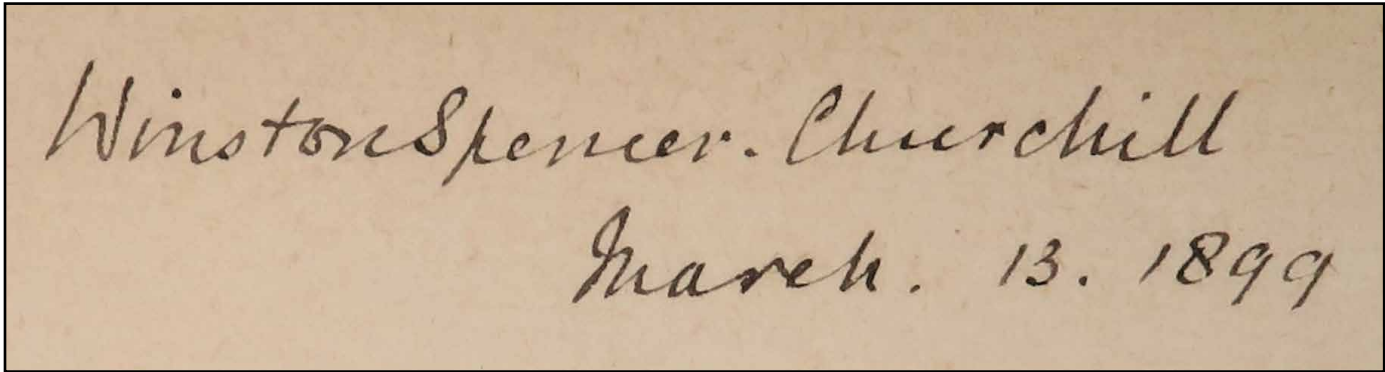 Winston Spencer. Churchill
March. 13. 1899